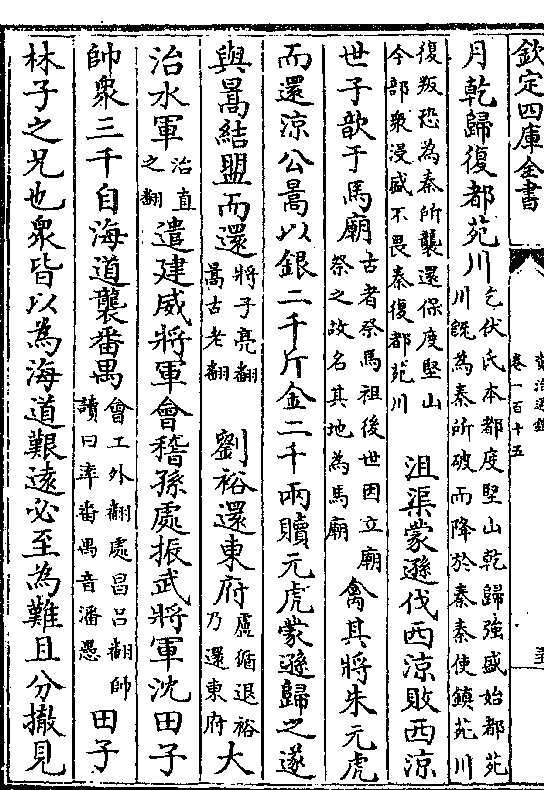 欽定四庫全書
資治通鑑
卷一百十五
月乾歸復都苑川乞伏氏本都度堅山乾歸強盛始都苑
川既為秦所破而降於秦秦使鎮苑川
復叛恐為秦所襲還保度堅山
今部衆浸盛不畏秦復都苑川
沮渠蒙遜伐西涼敗西涼
世子歆于馬廟古者祭馬祖後世因立廟
祭之故名其地為馬廟
禽其將朱元虎
而還涼公暠以銀二千斤金二千兩贖元虎蒙遜歸之遂
與暠結盟而還將子亮翻
暠古老翻
劉裕還東府盧循退裕
乃還東府
大
治水軍治直
之翻
遣建威將軍會稽孫處振武將軍沈田子
帥衆三千自海道襲番禺會工外翻處昌吕翻帥
讀曰率番禺音潘愚
田子
林子之兄也衆皆以為海道艱遠必至為難且分撤見